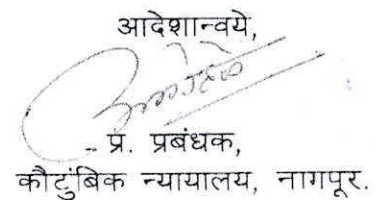 आदेशान्वये,
प्र. प्रबंधक,
कौटुंबिक न्यायालय, नागपूर.